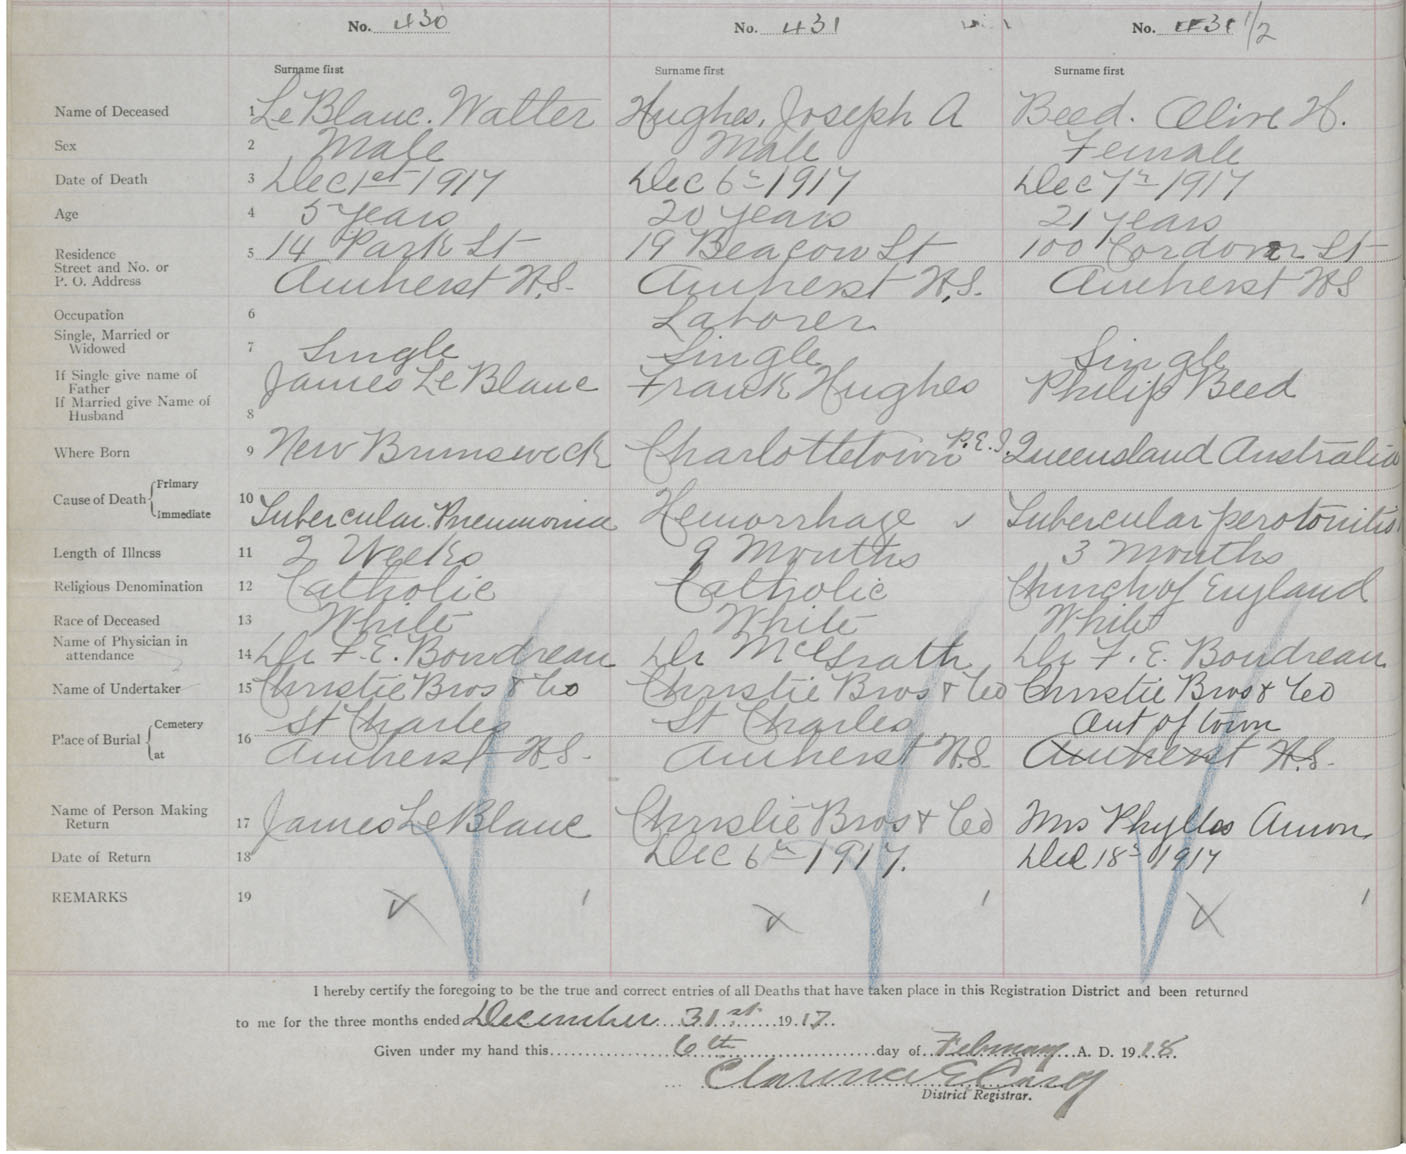 No. 430 No. 431 No. 431 1/2
Surname first Surname first Surname first
Name of Deceased 1 LeBlanc. Walter Hughes, Joseph A Beed. Olive H.
Sex 2 Male Male Female
Date of Death 3 Dec 1st 1917 Dec 6th 1917 Dec 7th 1917
Age 4 5 years 20 years 21 years
Residence 5 14 Park St 19 Beacon St 100 Cordova St
Street and No. or
P. O. Address Amherst N.S. Amherst N.S. Amherst NS
Occupation 6 Laborer
Single, Married or
Widowed 7 Single Single Single
If Single give name of
Father James LeBlanc Frank Hughes Philip Beed
If Married give Name of
Husband 8
Where Born 9 New Brunswick Charlottetown P.E.I. Queensland Australia
Cause of Death Primary
Immediate 10 Tubercular Pneumonia Hemorrhage Tubercular perotonitis
Length of Illness 11 2 Weeks 9 Months 3 Months
Religious Denomination 12 Catholic Catholic Church of England
Race of Deceased 13 White White White
Name of Physician in
attendance 14 Dr F. E. Boudreau Dr McGrath Dr F. E. Boudreau
Name of Undertaker 15 Christie Bros & Co Christie Bros & Co Christie Bros & Co
Place of Burial Cemetery 16 St Charles St Charles Out of town
at Amherst N.S. Amherst N.S. Amherst N.S.
Name of Person Making
Return 17 James LeBlanc Christie Bros & Co Mrs Phyllos Amon
Date of Return 18 Dec 6th 1917. Dec 18th 1917
REMARKS 19
I hereby certify the foregoing to be the true and correct entries of all Deaths that have taken place in this Registration District and been returned
to me for the three months ended December 31st 1917.
Given under my hand this 6th day of February A. D. 1918.
Clarence E Casey
District Registrar.